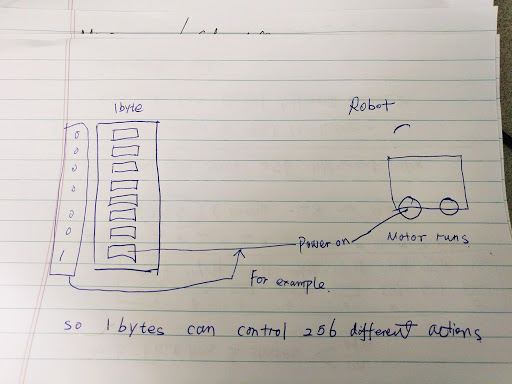 1byte
Robot
0
0
0
0
0
0
1
Power on
Motor runs
For example.
so 1bytes can control 256 different actions